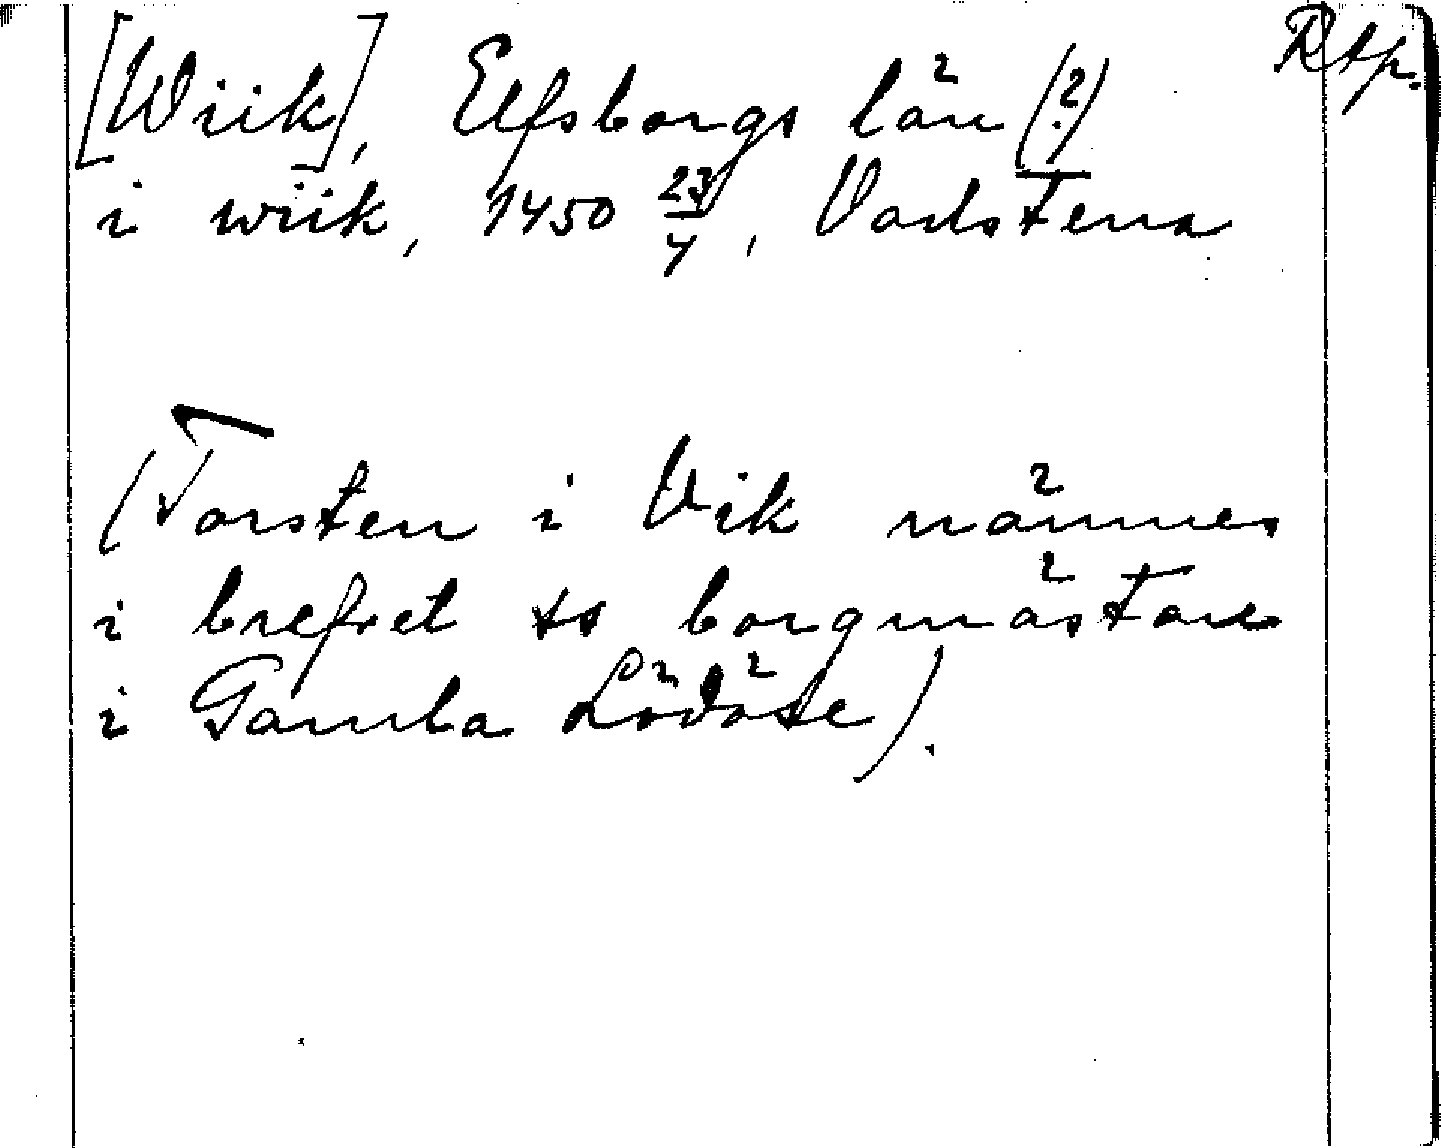 [Wiik], Elfsborgs län (?) Rtp.
i wiik, 1450 23/4, Vadstena
(Torsten i Vik nämnes
i brefvet ss borgmästare
i Gamla Lödöse).